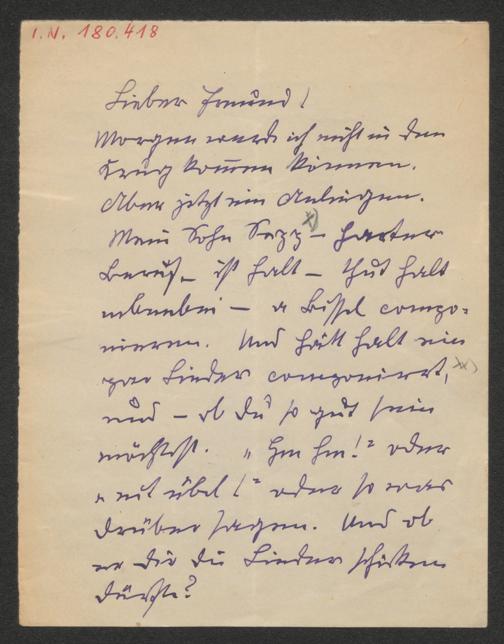 I.N. 180.418
Lieber Freund!
Morgen werde ich nicht in den
Krug kommen können.
Aber jetzt ein Anliegen.
Mein Sohn Sepp x) – harter
Beruf – ist halt – thut halt
nebenbei – a Bissl compo-
nieren. Und hätt halt ein
paar Lieder componirt, xx)
und – ob du so gut sein
möchtest. „Hm hm!“ oder
„nit übel!“ oder so was
drüber sagen. Und ob
er dir die Lieder schicken
dürfte?